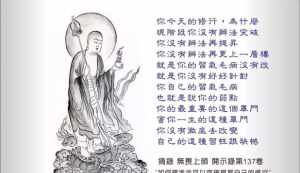 你今天的修行，為什麼
現階段你沒有辦法突破
你沒有辦法再提昇
你沒有辦法再更上一層樓
就是你的習氣毛病沒有改
就是你沒有好好針對
你自己的習氣毛病
也就是說你的弱點
你的最重要的這個罩門
害你一生的這種罩門
你沒有徹底去改變
自己的這種習性跟執著
摘錄 無畏上師 開示錄第137卷